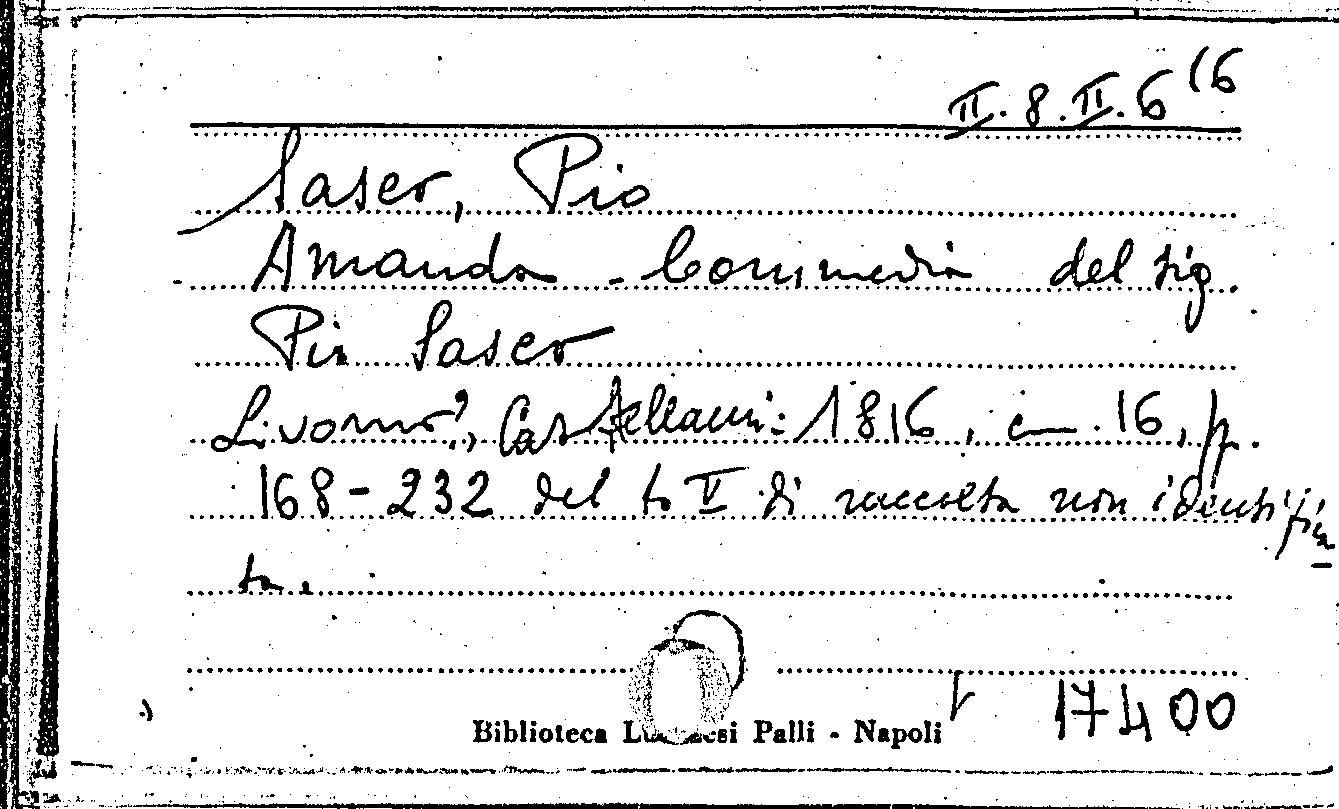 II. 8. II. 6 16
Sasco, Pio
Amanda - Commedia del sig.
Pio Sasco
Livorno?, Castellani: 1816, cm. 16, pp.
168-232 del to V di raccolta non identifica
ta.
Biblioteca Palli - Napoli
17400